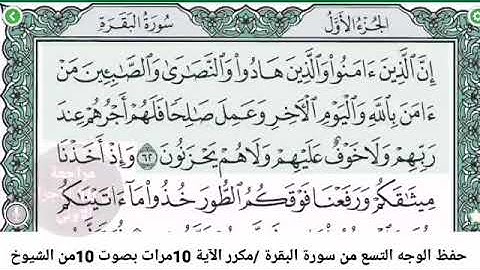 الجُزءُ الأَوَّلُ سُورَةُ البَقَرَةِ
إِنَّ ٱلَّذِينَ ءَامَنُوا۟ وَٱلَّذِينَ هَادُوا۟ وَٱلنَّصَٰرَىٰ وَٱلصَّٰبِـِٔينَ مَنْ
ءَامَنَ بِٱللَّهِ وَٱلْيَوْمِ ٱلْءَاخِرِ وَعَمِلَ صَٰلِحًا فَلَهُمْ أَجْرُهُمْ عِندَ
رَبِّهِمْ وَلَا خَوْفٌ عَلَيْهِمْ وَلَا هُمْ يَحْزَنُونَ ٦٢ وَإِذْ أَخَذْنَا
مِيثَٰقَكُمْ وَرَفَعْنَا فَوْقَكُمُ ٱلطُّورَ خُذُوا۟ مَآ ءَاتَيْنَٰكُم
حفظ الوجه التسع من سورة البقرة /مكرر الآية 10مرات بصوت 10من الشيوخ